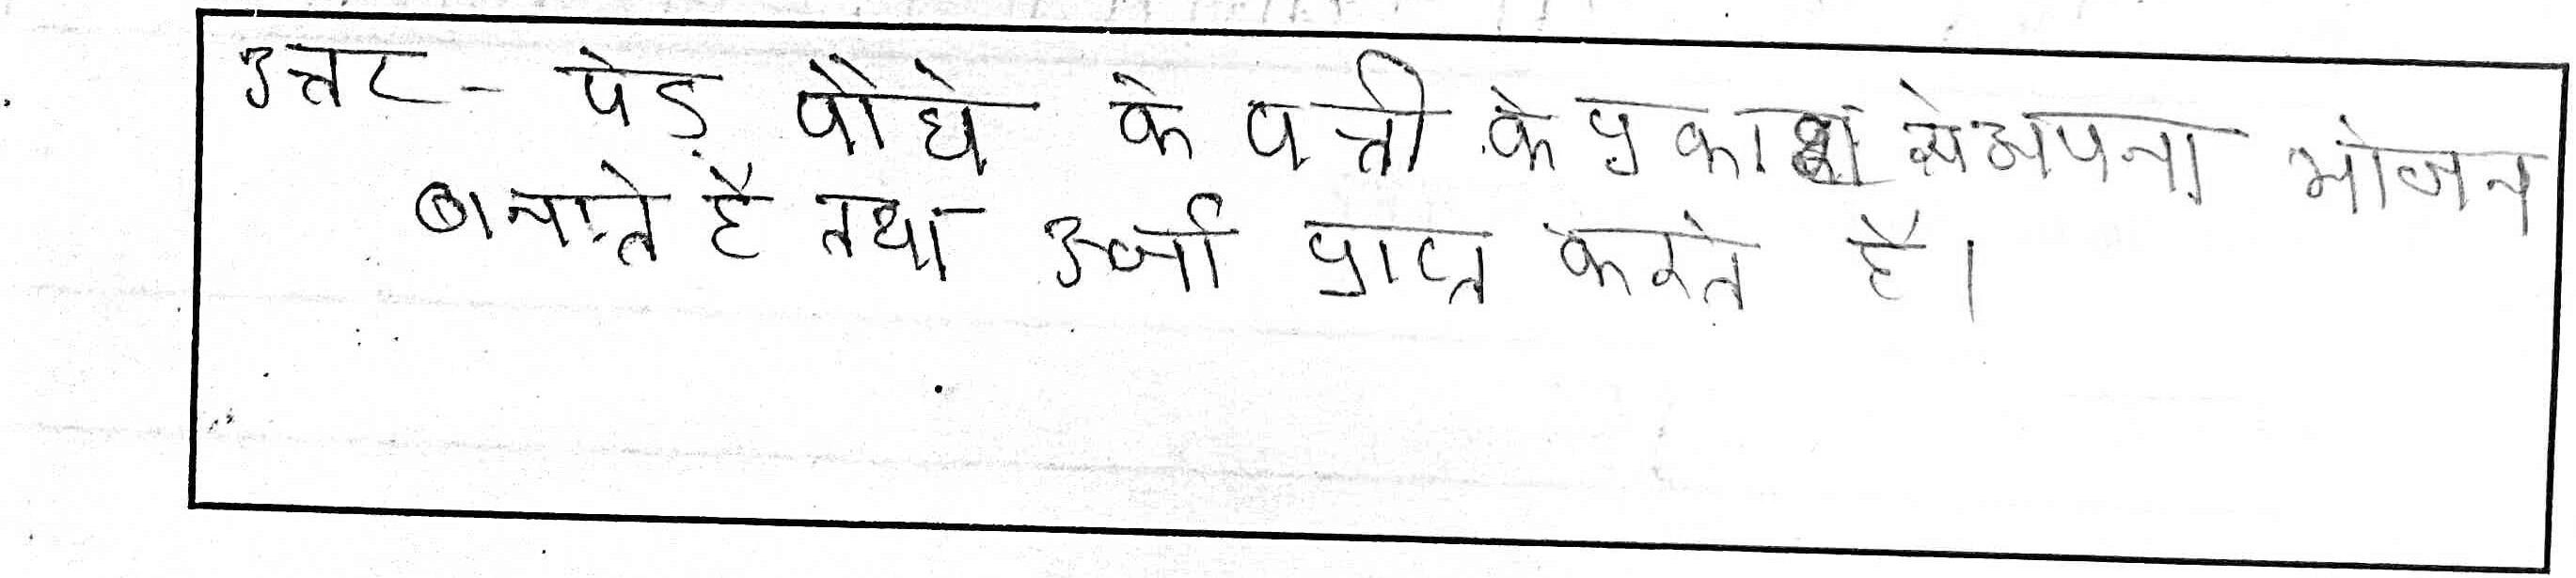 उत्तर - पेड़ पौधे के पत्ती के प्रकाश से अपना भोजन
बनाते है तथा उर्जा प्राप्त करते है।